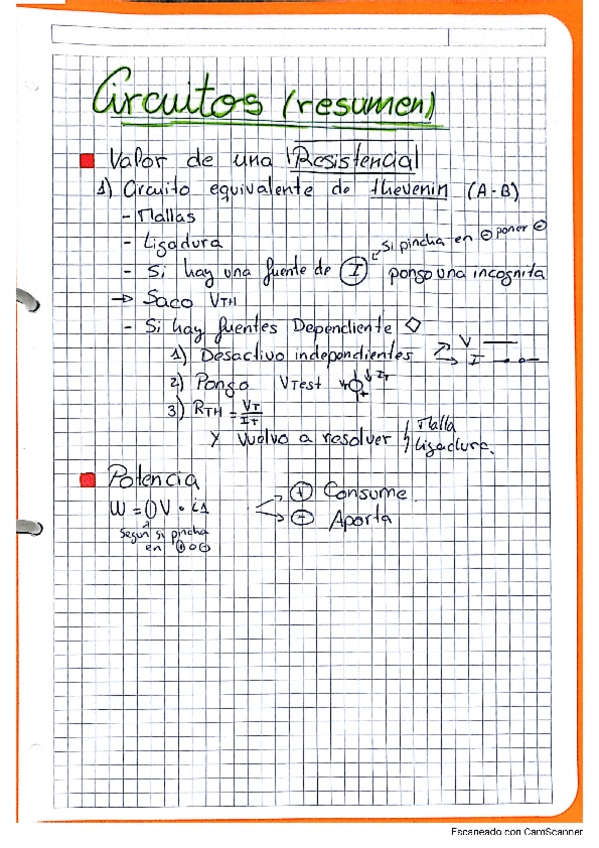 Circuitos (resumen)
Valor de una Resistencia
1) Circuito equivalente de thevenin (A-B)
- Mallas
- Ligadura
Si pincha en ⊖ poner ⊖
- Si hay una fuente de I pongo una incognita
→ Saco VTH
- Si hay fuentes Dependiente ◇
1) Desactivo independientes V I
2) Pongo VTest VT IT
3) RTH = VT/IT
y vuelvo a resolver Malla
Ligadura.
Potencia
W = () V · i1
⊕ Consume.
⊖ Aporta
Según si pincha
en ⊕ o ⊖
Escaneado con CamScanner